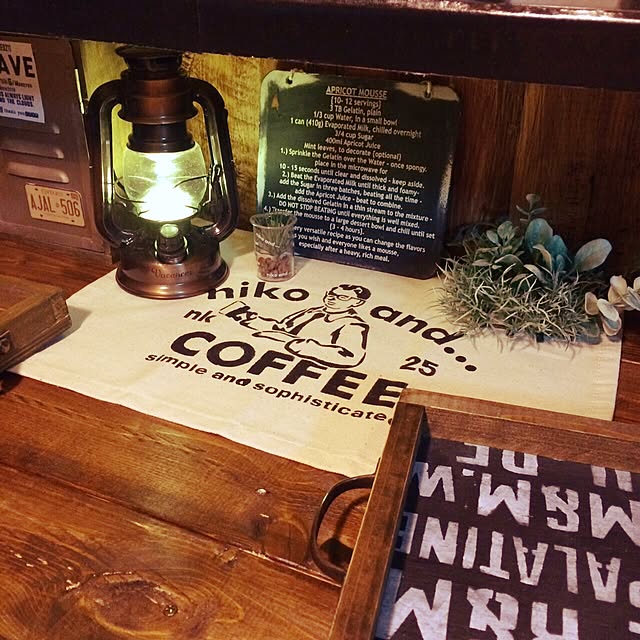 AVE
AJAL·506
Vacances
APRICOT MOUSSE
[10- 12 servings]
3 TB Gelatin, plain
1/3 cup Water, in a small bowl
1 can (410g) Evaporated Milk, chilled overnight
3/4 cup Sugar
400ml Apricot Juice
Mint leaves, to decorate (optional)
1.) Sprinkle the Gelatin over the Water - once spongy,
place in the microwave for
10 - 15 seconds until clear and dissolved - keep aside.
2.) Beat the Evaporated Milk until thick and foamy,
add the Sugar in three batches, beating all the time
add the Apricot Juice - beat to combine.
3.) Add the dissolved Gelatin in a thin stream to the mixture -
DO NOT STOP BEATING until everything is well mixed.
4.) Transfer the mousse to a large dessert bowl and chill until set
[3 - 4 hours].
very versatile recipe as you can change the flavors
as you wish and everyone likes a mousse,
especially after a heavy, rich meal.
niko and...
nk
25
COFFEE
simple and sophisticate
DE
M&M.W
PALATINE
H&M